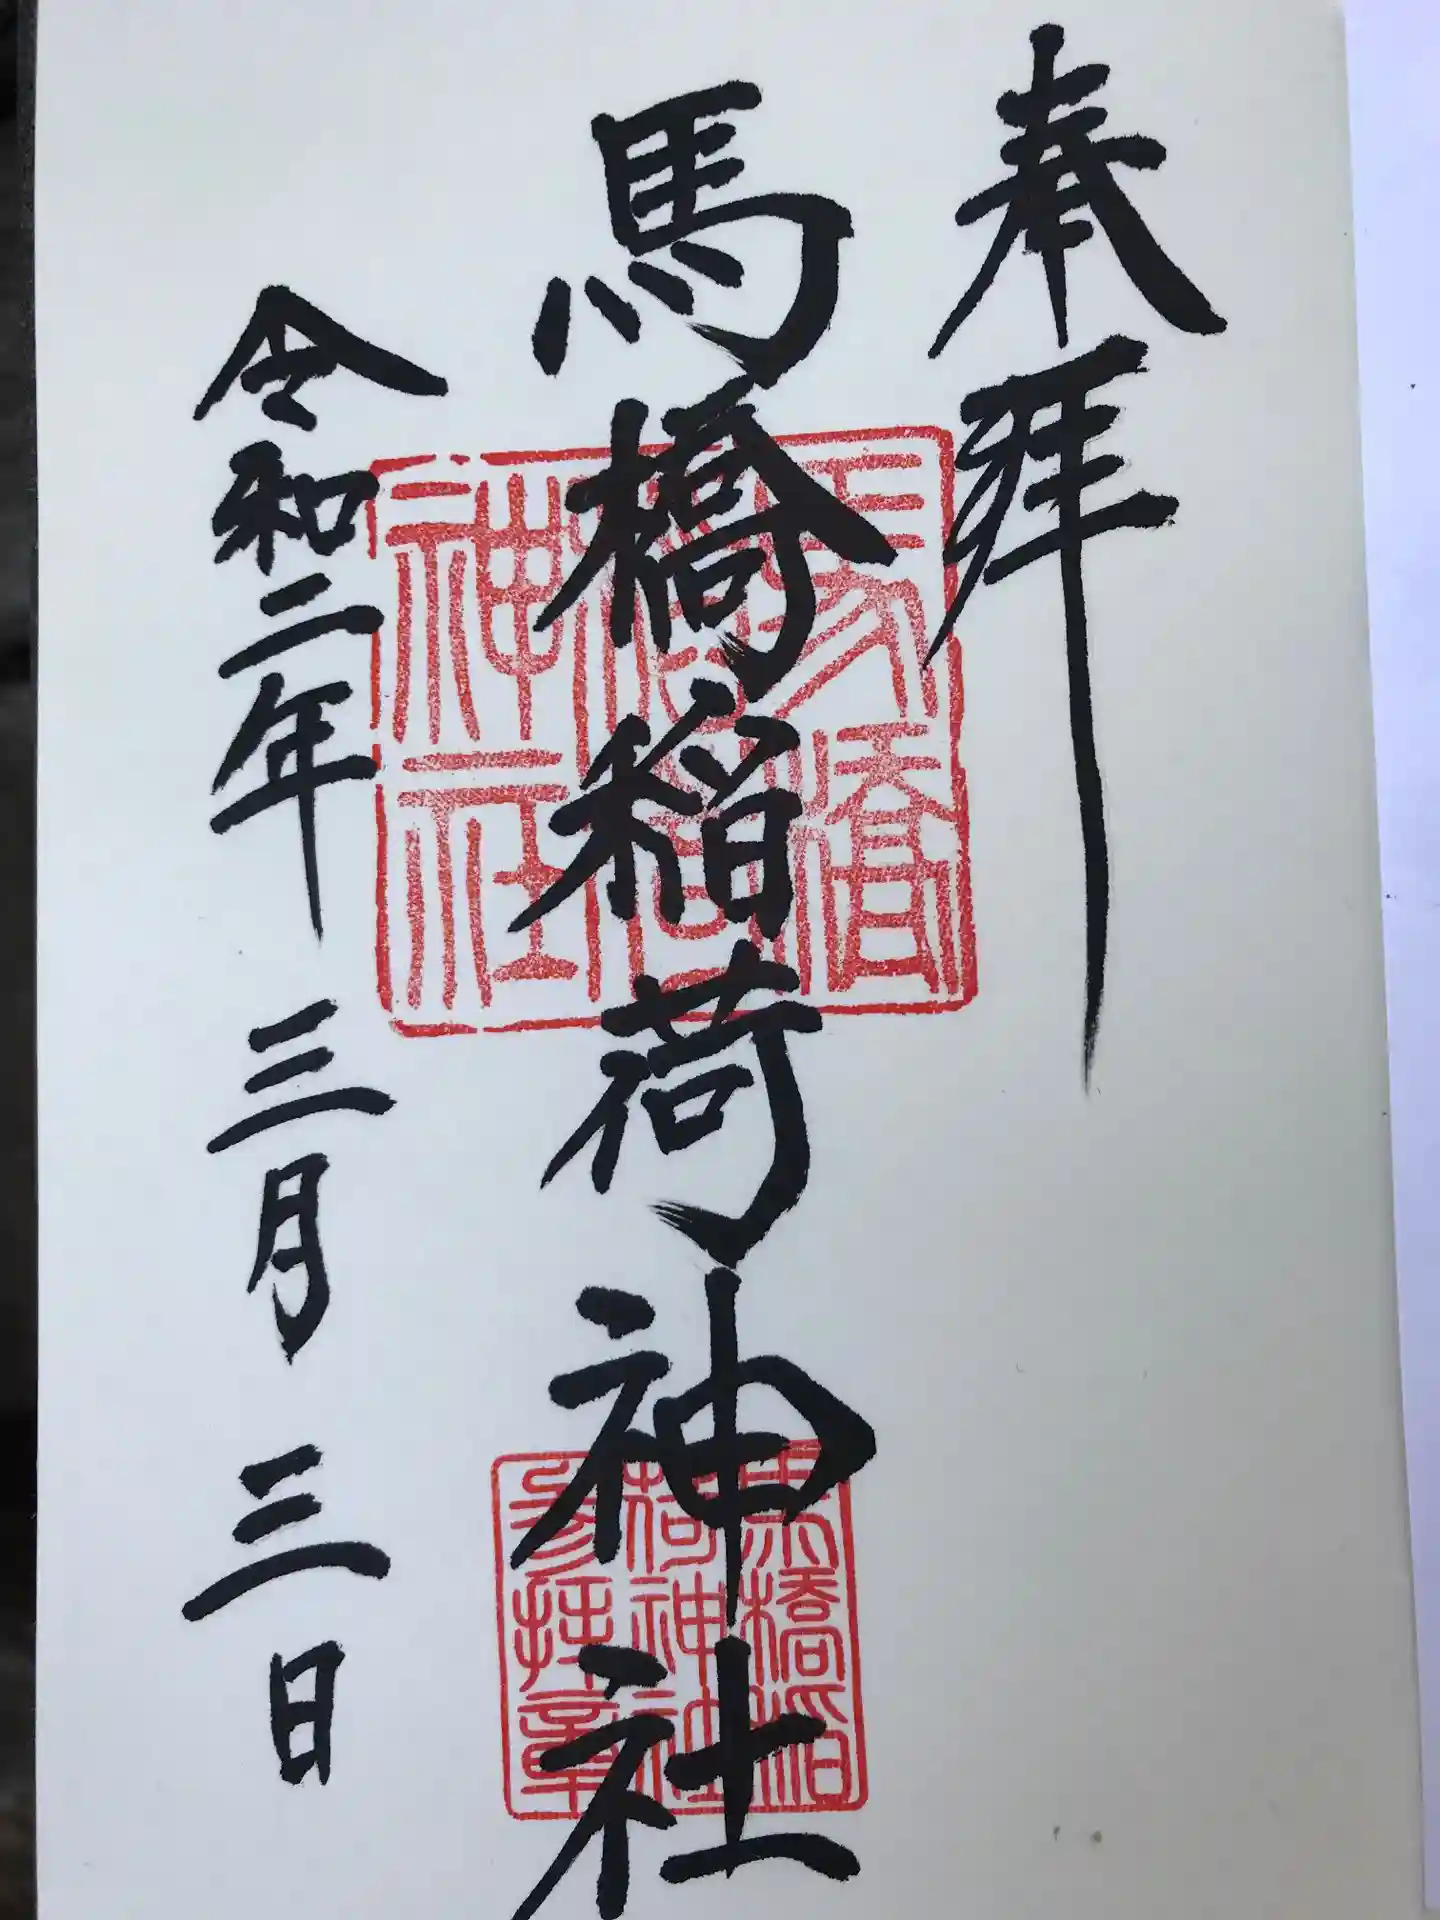 奉拝
馬橋稲荷神社
令和二年 三月 三日
馬橋
稲荷
神社
馬橋稲
荷神社
参拝章